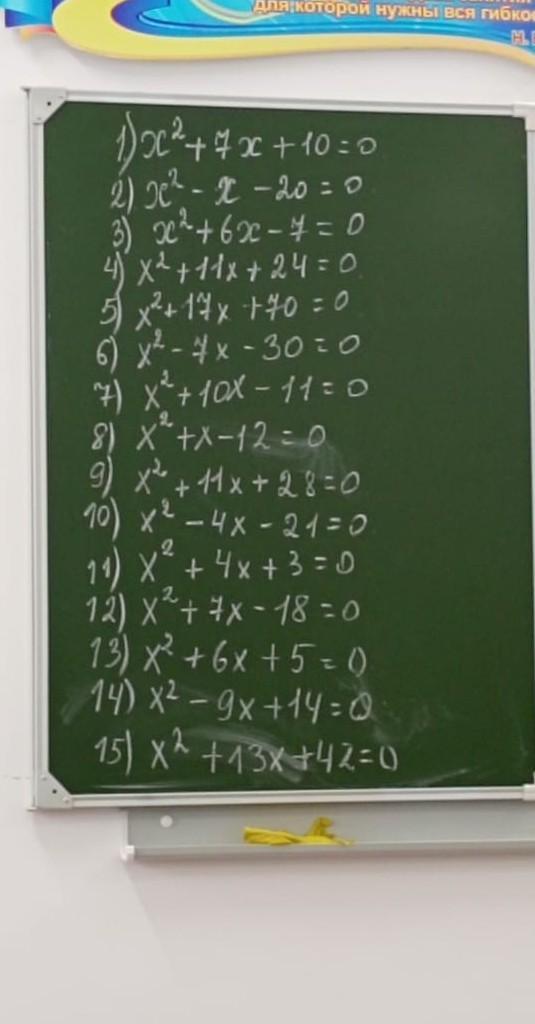 для которой нужны вся
1) x² + 7x + 10 = 0
2) x² - x - 20 = 0
3) x² + 6x - 7 = 0
4) x² + 11x + 24 = 0
5) x² + 17x + 70 = 0
6) x² - 7x - 30 = 0
7) x² + 10x - 11 = 0
8) x² + x - 12 = 0
9) x² + 11x + 28 = 0
10) x² - 4x - 21 = 0
11) x² + 4x + 3 = 0
12) x² + 7x - 18 = 0
13) x² + 6x + 5 = 0
14) x² - 9x + 14 = 0
15) x² + 13x + 42 = 0